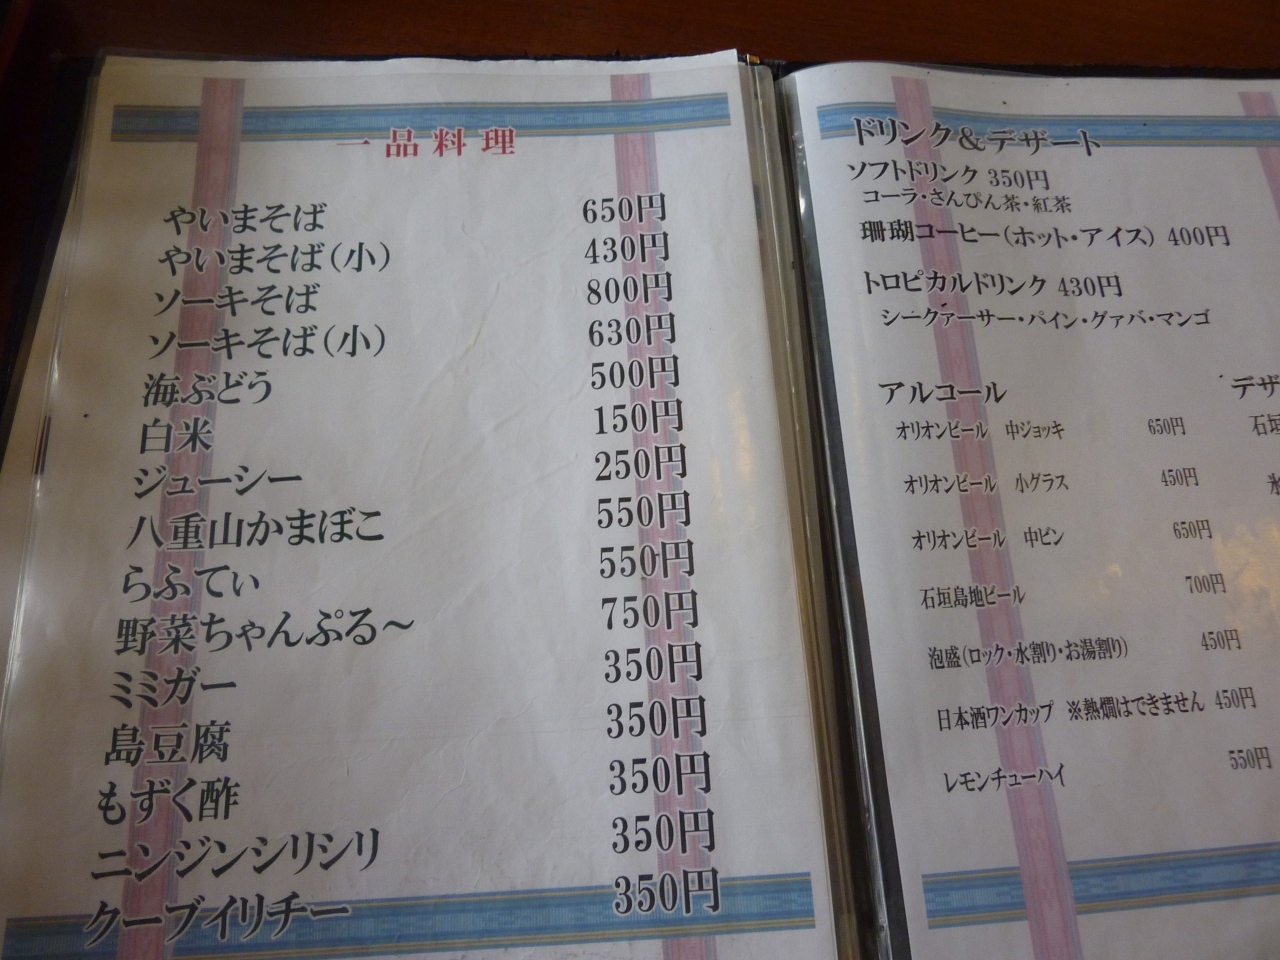 一品料理
やいまそば 650円
やいまそば(小) 430円
ソーキそば 800円
ソーキそば(小) 630円
海ぶどう 500円
白米 150円
ジューシー 250円
八重山かまぼこ 550円
らふてぃ 550円
野菜ちゃんぷる～ 750円
ミミガー 350円
島豆腐 350円
もずく酢 350円
ニンジンシリシリ 350円
クーブイリチー 350円
ドリンク&デザート
ソフトドリンク 350円
コーラ・さんぴん茶・紅茶
珊瑚コーヒー(ホット・アイス) 400円
トロピカルドリンク 430円
シークァーサー・パイン・グァバ・マンゴ
アルコール
オリオンビール 中ジョッキ 650円
オリオンビール 小グラス 450円
オリオンビール 中ビン 650円
石垣島地ビール 700円
泡盛(ロック・水割り・お湯割り) 450円
日本酒ワンカップ ※熱燗はできません 450円
レモンチューハイ 550円
デザ
石垣